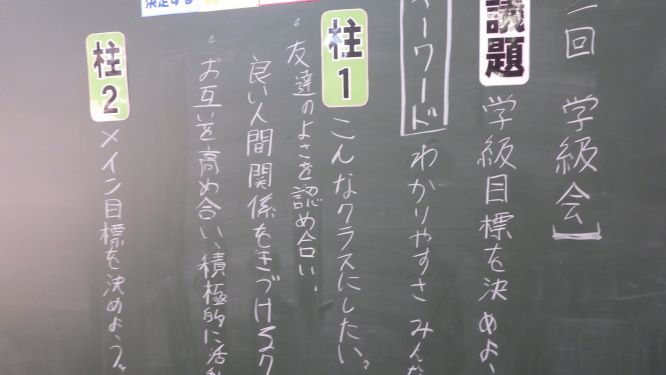 回 学級会】
議題 学級目標を決めよ
ーワード わかりやすさ みん
柱1 こんなクラスにしたい。
。友達のよさを認め合い、
良い人間関係をきづけるク
。お互いを高め合い、積極的に活
柱2 メイン目標を決めよう。
決定する